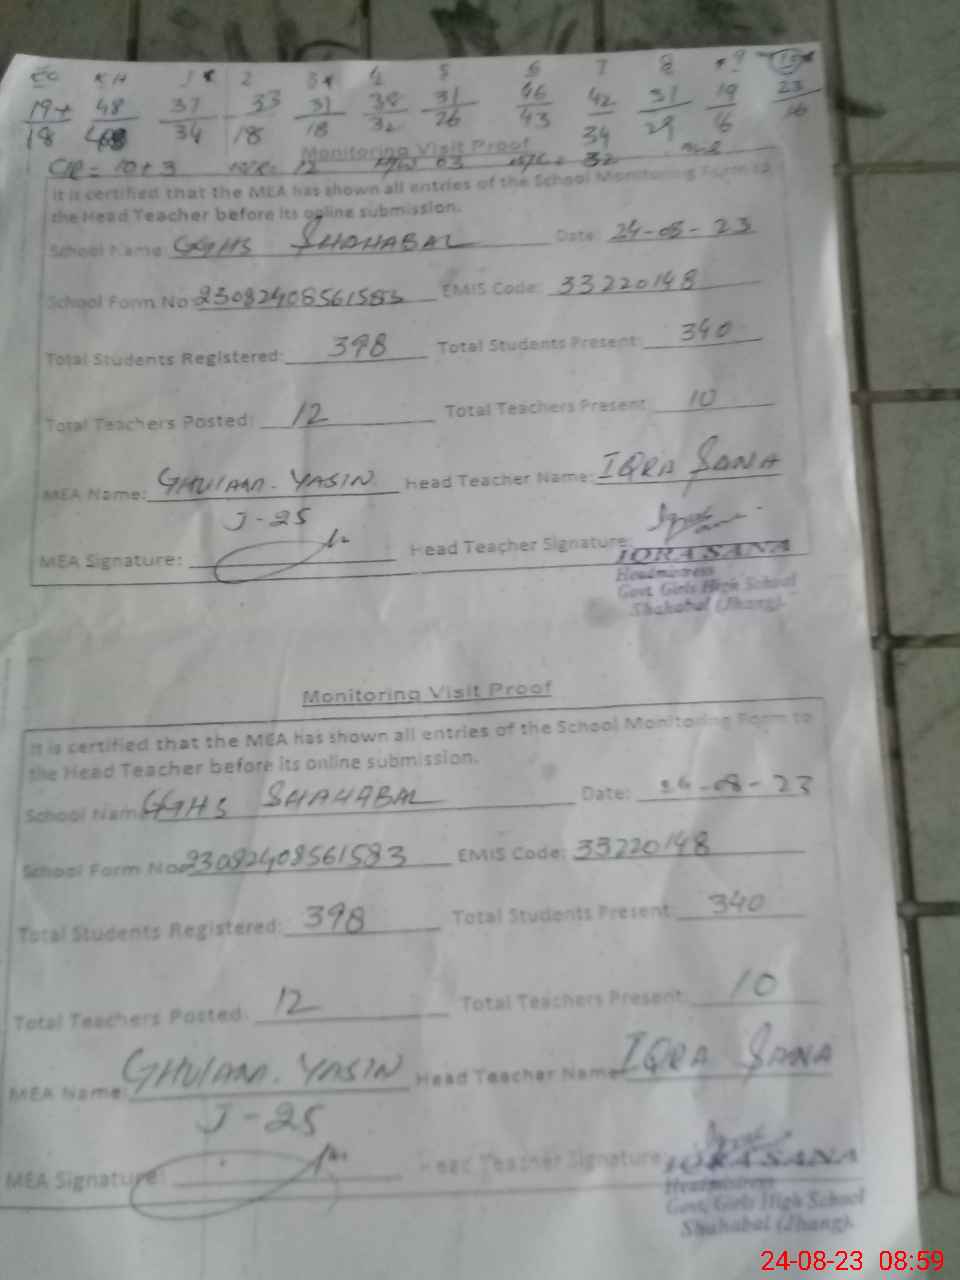 EC KH 1 2 3 4 5 6 7 8 9 10
19+ 48 37 33 31 38 31 46 42 31 19 23
18 34 18 18 32 26 43 34 29 16 16
Monitoring Visit Proof
CR = 10 + 3 12 03 32
It is certified that the MEA has shown all entries of the School Monitoring Form to
the Head Teacher before its online submission.
School Name GGHS SHAHABAL Date: 24-08-23
School Form No 23082408561583 EMIS Code: 33220148
Total Students Registered: 398 Total Students Present: 340
Total Teachers Posted: 12 Total Teachers Present 10
MEA Name: GHULAM. YASIN Head Teacher Name: IQRA SANA
J-25
MEA Signature: Head Teacher Signature:
IQRA SANA
Headmistress
Govt. Girls High School
Shahabal (Jhang).
Monitoring Visit Proof
It is certified that the MEA has shown all entries of the School Monitoring Form to
the Head Teacher before its online submission.
School Name GGHS SHAHABAL Date: 24-08-23
School Form No 23082408561583 EMIS Code: 33220148
Total Students Registered: 398 Total Students Present: 340
Total Teachers Posted: 12 Total Teachers Present: 10
MEA Name: GHULAM. YASIN Head Teacher Name IQRA SANA
J-25
MEA Signature: Head Teacher Signature:
IQRA SANA
Headmistress
Govt. Girls High School
Shahabal (Jhang).
24-08-23 08:59